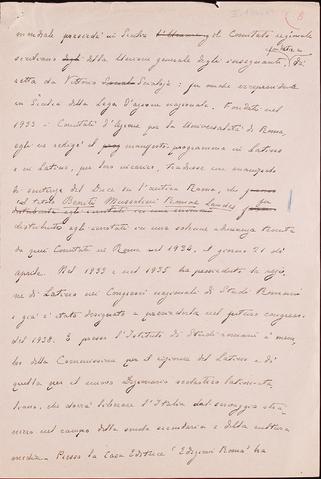 mondiale presiedé in Sicilia il Comitato regionale
siciliano della Unione generale degli insegnanti, di-
retta da Vittorio Scialoja: fu anche vicepresidente
in Sicilia della Lega d'azione nazionale. Fondati nel
1933 i Comitati d'Azione per la Universalità di Roma,
egli ne redigé il manifesto programma in Latino
e in Latino, per loro incarico, tradusse un manipolo
di sentenze del Duce su l'antica Roma, che
col titolo Benito Mussolini Romae Laudes fu
distribuito agli invitati in una solenne adunanza tenuta
da quei Comitati in Roma nel 1934, il giorno 21 di
aprile. Nel 1933 e nel 1935 ha presieduto la sezio-
ne di Latino nei Congressi nazionali di Studi Romani
e già è stato designato a presiederla nel futuro congresso
del 1938. E presso l'Istituto di Studi romani è mem-
bro della Commissione per il rigione del Latino e di
quella per il nuovo Dizionario scolastico latino ita-
liano, che dovrà liberare l'Italia dal servaggio stra-
niero nel campo della scuola secondaria e della cultura
media. Presso la Casa Editrice "Edizioni Roma" ha